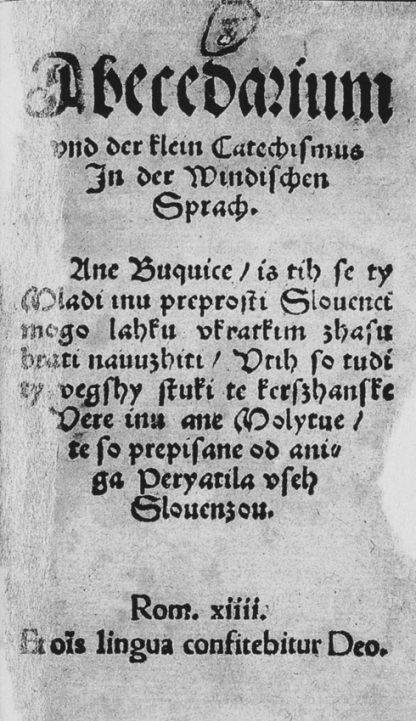 Abecedarium
vnd der klein Catechismus
In der Windischen
Sprach.
Ane Buquice / is tih se ty
Mladi inu preprosti Slouenci
mogo lahku vkratkim zhasu
brati nauuzhiti / Vtih so tudi
ty vegshy stuki te kerszhanske
Vere inu ane Molytue /
te so prepisane od ani-
ga Peryatila vseh
Slouenzou.
Rom. xiiii.
Et oīs lingua confitebitur Deo.